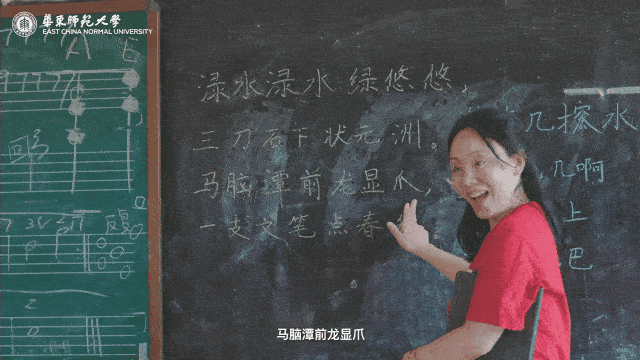 華東師範大學
EAST CHINA NORMAL UNIVERSITY
渌水渌水绿悠悠，
三刀石下状元洲。
马脑潭前龙显爪，
一支文笔点春
几擦水
几啊
上
巴
马脑潭前龙显爪